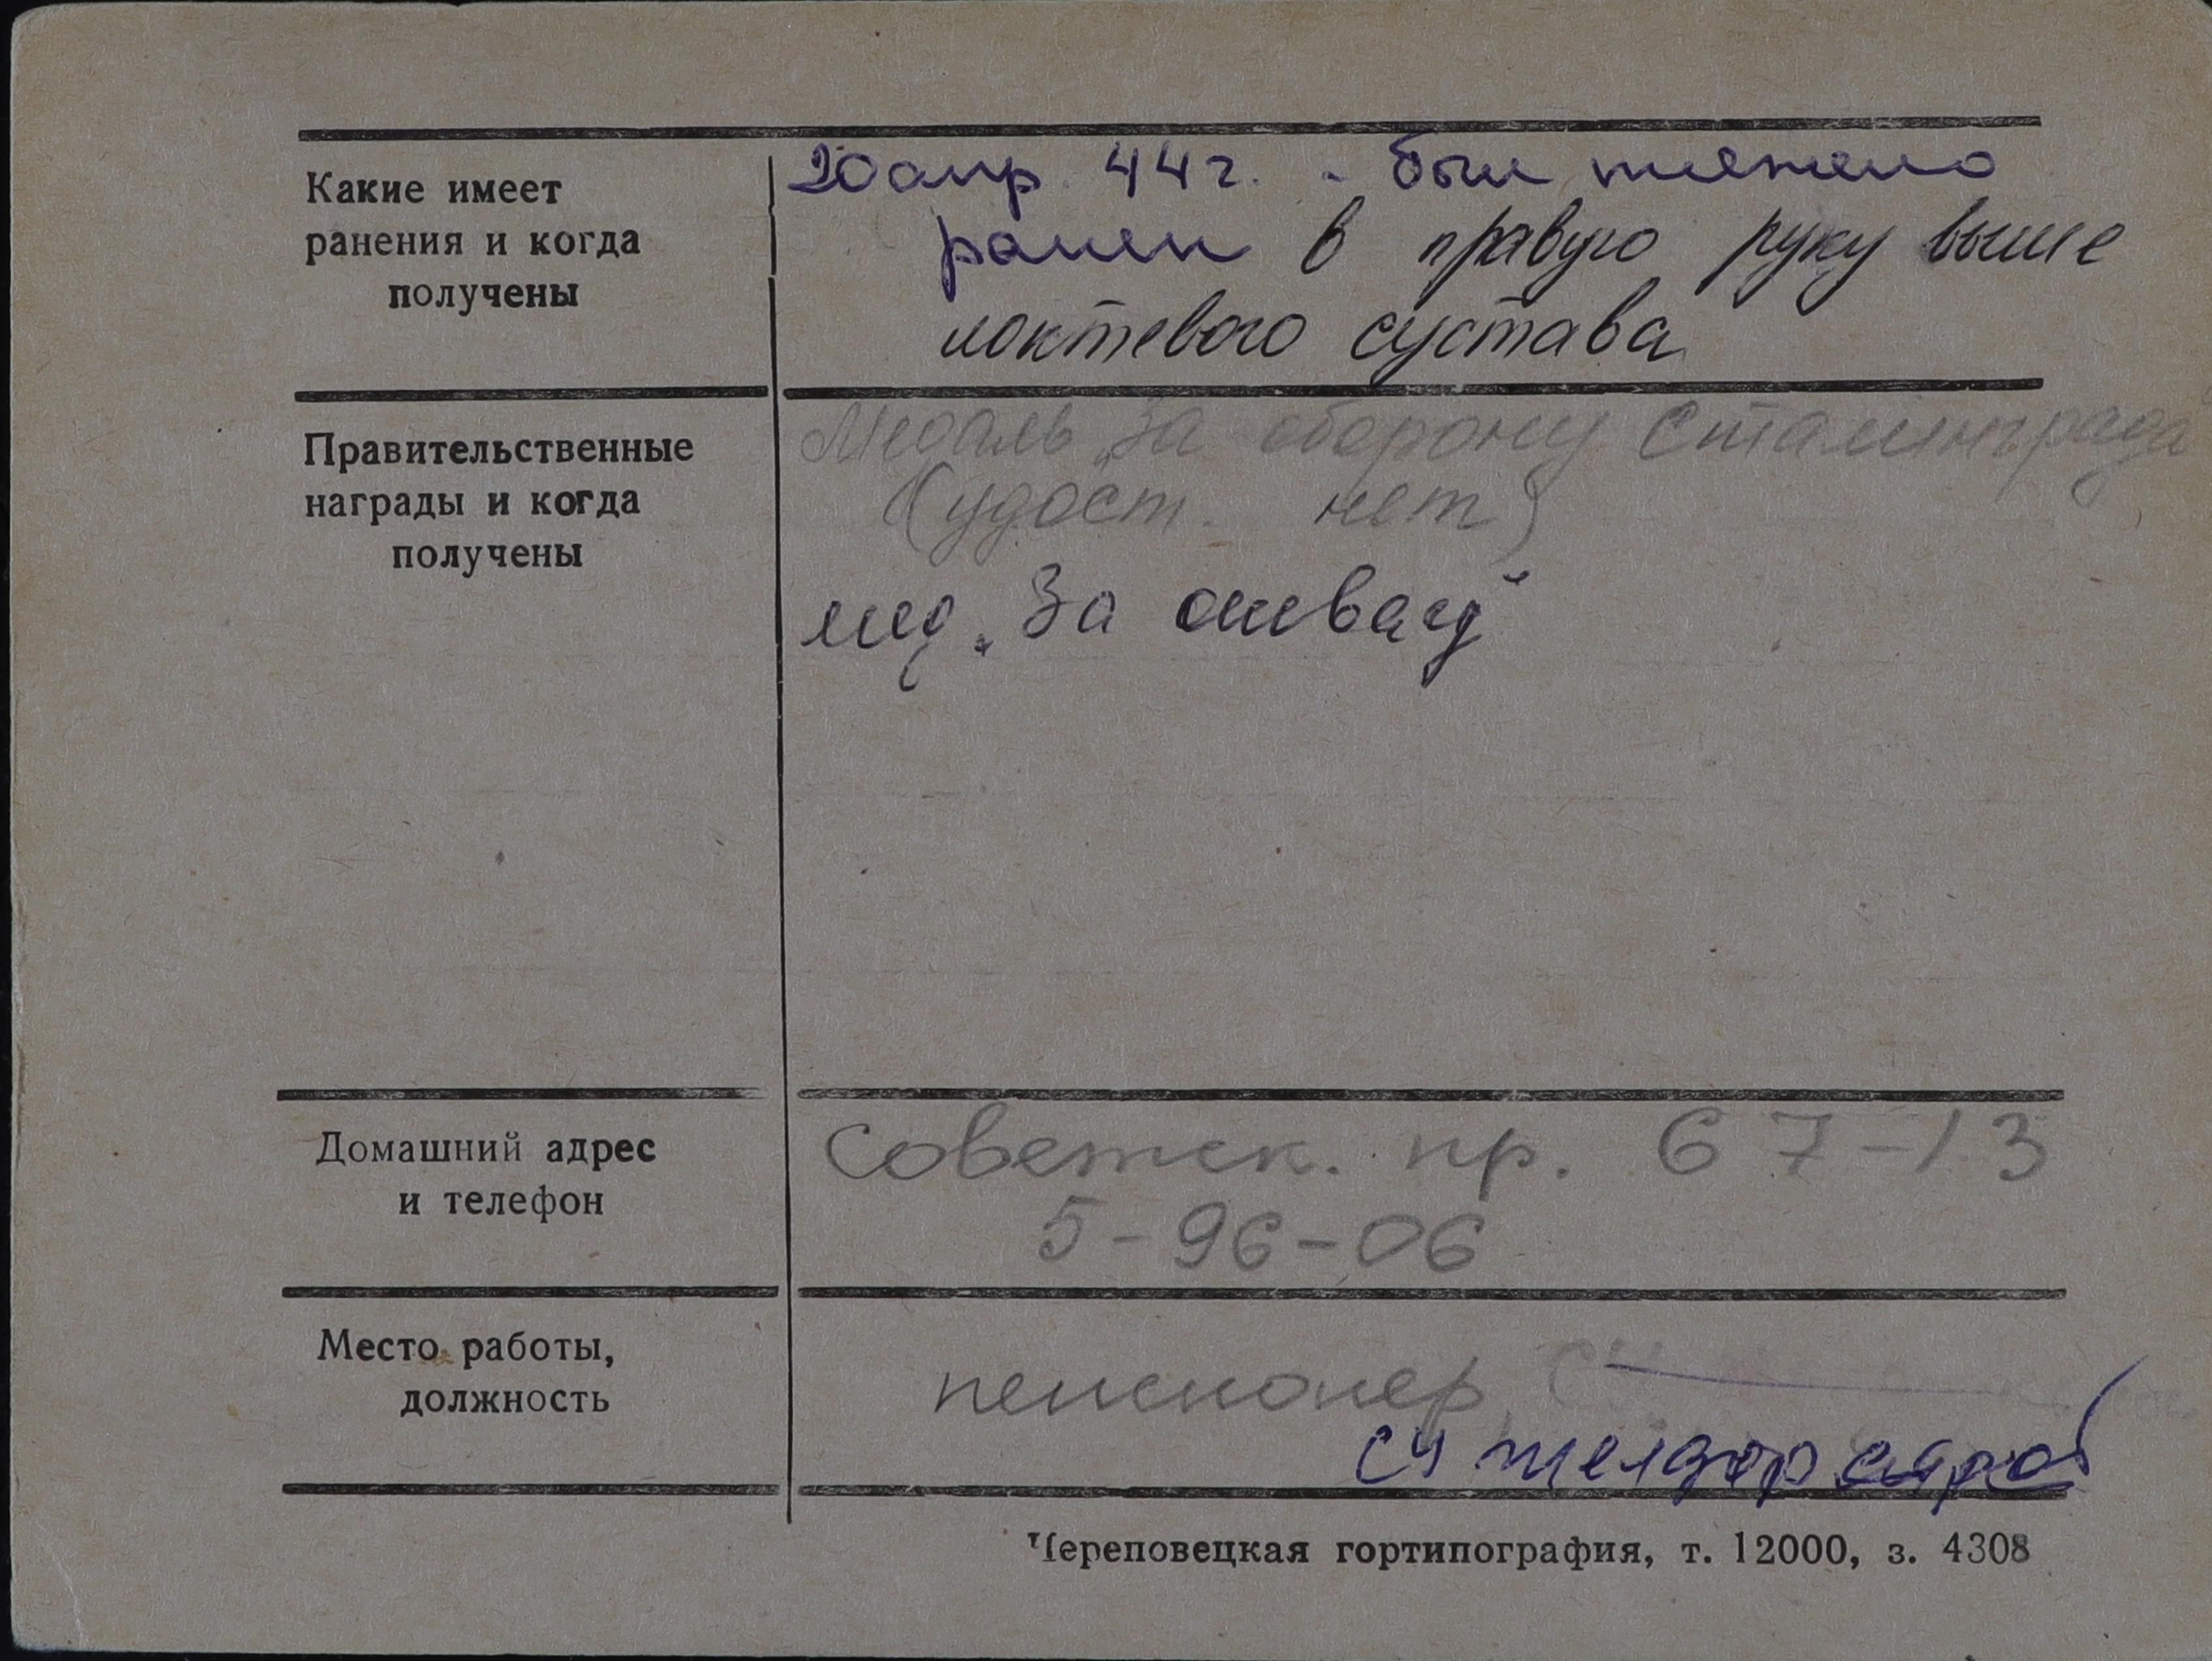 Какие имеет
ранения и когда
получены
20 апр. 44 г. - был тяжело
ранен в правую руку выше
локтевого сустава
Правительственные
награды и когда
получены
Медаль „За оборону Сталинграда
(удост. нет)
мед. „За отвагу"
Домашний адрес
и телефон
Советск. пр. 67-13
5-96-06
Место работы,
должность
пенсионер
СУ
Череповецкая гортипография, т. 12000, з. 4308